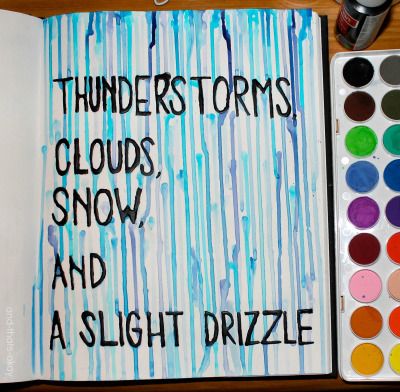 THUNDERSTORMS,
CLOUDS,
SNOW,
AND
A SLIGHT DRIZZLE
and-thats-okay